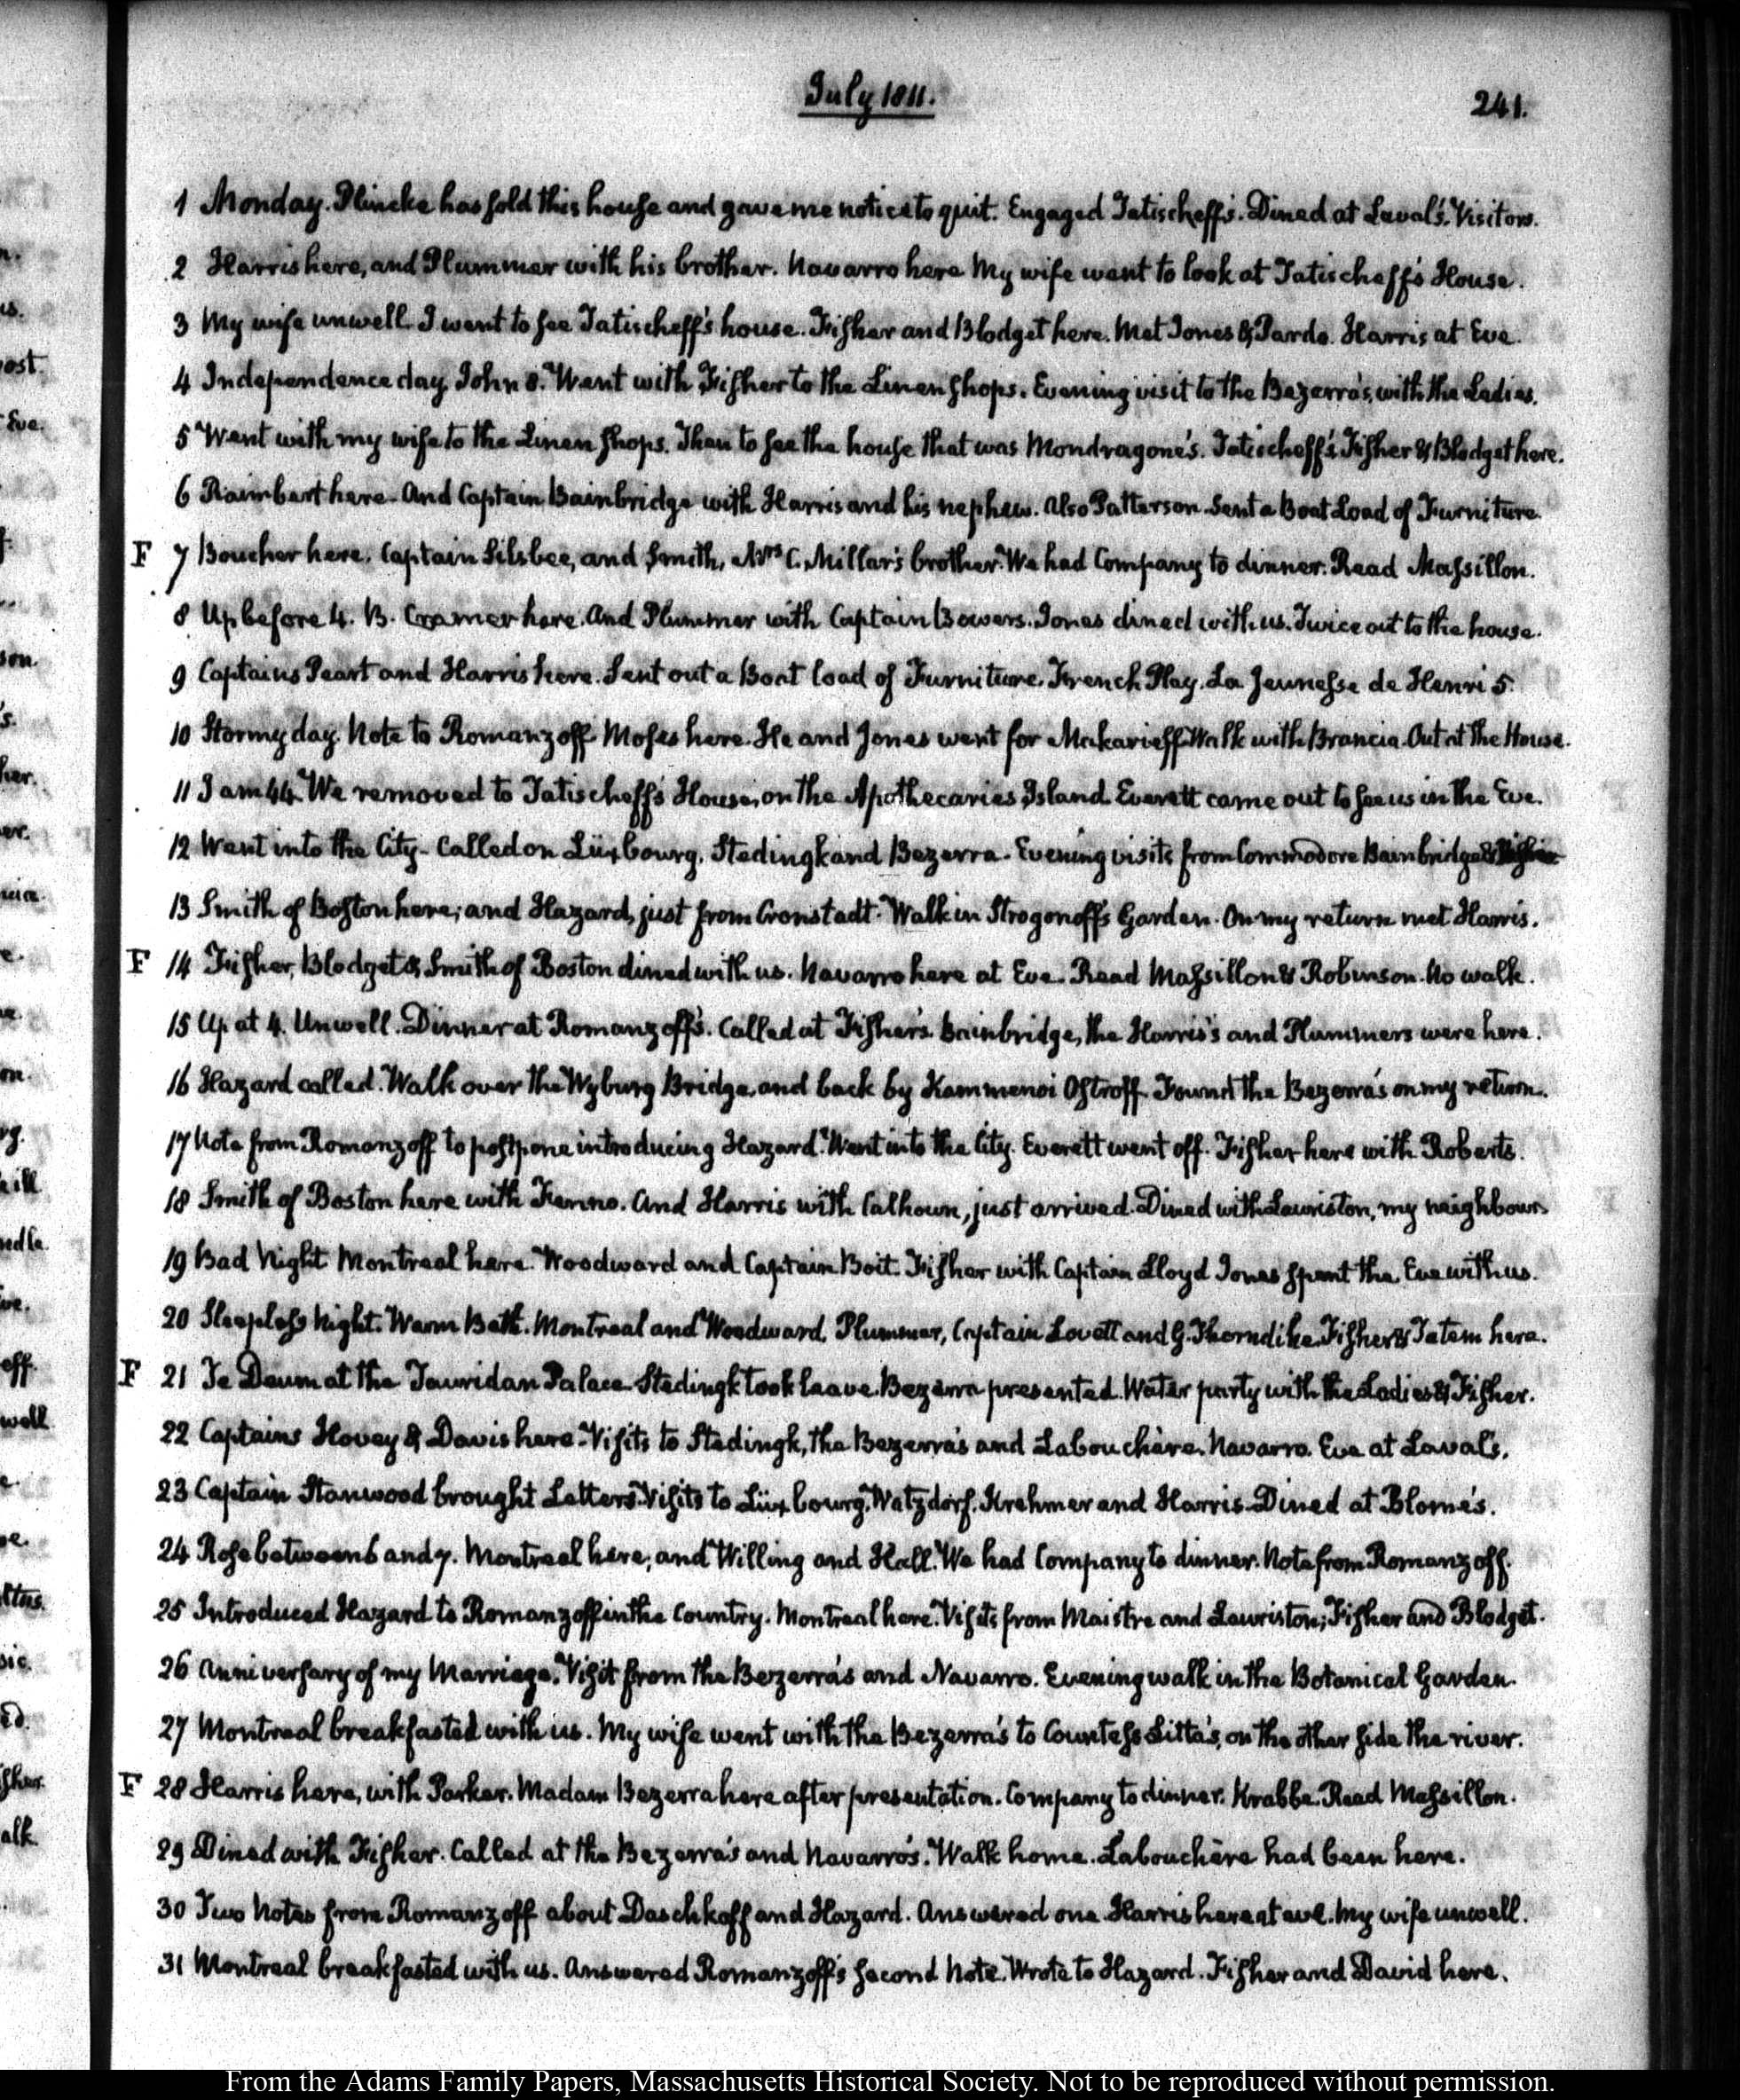 July 1811.
241.
1 Monday. Plincke has sold this house and gave me notice to quit. Engaged Tatischeff's. Dined at Laval's. Visitors.
2 Harris here, and Plummer with his brother. Navarro here My wife went to look at Tatischeff's House.
3 My wife unwell. I went to see Tatischeff's house. Fisher and Blodget here. Met Jones & Pardo. Harris at Eve.
4 Independence day. John 8. Went with Fisher to the Linen shops. Evening visit to the Bezerra's, with the Ladies.
5 Went with my wife to the Linen shops. Then to see the house that was Mondragone's. Tatischeff's. Fisher & Blodget here.
6 Raimbert here. And Captain Bainbridge with Harris and his nephew. Also Patterson. Sent a Boat Load of Furniture.
F 7 Boucher here. Captain Silsbee, and Smith, Mrs C. Millar's brother. We had Company to dinner. Read Massillon.
8 Up before 4. B. Cramer here. And Plummer with Captain Bowers. Jones dined with us. Twice out to the house.
9 Captains Peart and Harris here. Sent out a Boat load of Furniture. French Play. La Jeunesse de Henri 5.
10 Stormy day. Note to Romanzoff. Moses here. He and Jones went for Makarieff. Walk with Brancia. Out at the House.
11 I am 44. We removed to Tatischeff's House, on the Apothecaries Island. Everett came out to see us in the Eve.
12 Went into the City. Called on Lüxbourg, Stedingk and Bezerra. Evening visits from Commodore Bainbridge
13 Smith of Boston here; and Hazard, just from Cronstadt. Walk in Strogonoff's Garden. On my return met Harris.
F 14 Fisher, Blodget & Smith of Boston dined with us. Navarro here at Eve. Read Massillon & Robinson. No walk.
15 Up at 4. Unwell. Dinner at Romanzoff's. Called at Fisher's. Bainbridge, the Harris's and Plummers were here.
16 Hazard called. Walk over the Wyburg Bridge, and back by Kammenoi Ostroff. Found the Bezerra's on my return.
17 Note from Romanzoff to postpone introducing Hazard. Went into the City. Everett went off. Fisher here with Roberts.
18 Smith of Boston here with Fenno. And Harris with Calhoun, just arrived. Dined with Lauriston, my neighbour.
19 Bad Night Montreal here. Woodward and Captain Boit. Fisher with Captain Lloyd Jones spent the Eve with us.
20 Sleepless Night. Warm Bath. Montreal and Woodward, Plummer, Captain Lovett and G. Thorndike. Fisher & Tatem here.
F 21 Te Deum at the Tauridan Palace. Stedingk took leave. Bezerra presented. Water party with the Ladies & Fisher.
22 Captains Hovey & Davis here. Visits to Stedingk, the Bezerra's and Labouchère. Navarro. Eve at Laval's.
23 Captain Stanwood brought Letters. Visits to Lüxbourg, Watzdorf, Krehmer and Harris. Dined at Blome's.
24 Rose between 6 and 7. Montreal here, and Willing and Hall. We had Company to dinner. Note from Romanzoff.
25 Introduced Hazard to Romanzoff in the Country. Montreal here. Visits from Maistre and Lauriston; Fisher and Blodget.
26 Anniversary of my Marriage. Visit from the Bezerra's and Navarro. Evening walk in the Botanical Garden.
27 Montreal breakfasted with us. My wife went with the Bezerra's to Countess Litta's, on the other side the river.
F 28 Harris here, with Parker. Madam Bezerra here after presentation. Company to dinner. Krabbe. Read Massillon.
29 Dined with Fisher. Called at the Bezerra's and Navarro's. Walk home. Labouchère had been here.
30 Two Notes from Romanzoff about Daschkoff and Hazard. Answered one. Harris here at eve. My wife unwell.
31 Montreal breakfasted with us. Answered Romanzoff's second Note. Wrote to Hazard. Fisher and David here.
From the Adams Family Papers, Massachusetts Historical Society. Not to be reproduced without permission.